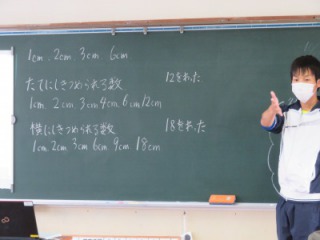 1cm. 2cm. 3cm 6cm
たてにしきつめられる数 12をわった
1cm. 2cm. 3cm 4cm. 6cm 12cm
横にしきつめられる数 18をわった
1cm. 2cm. 3cm 6cm 9cm. 18cm